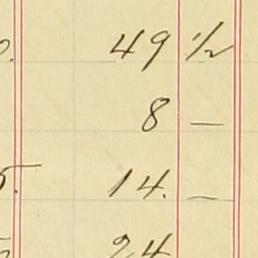 49 ½
8 —
14. —
24